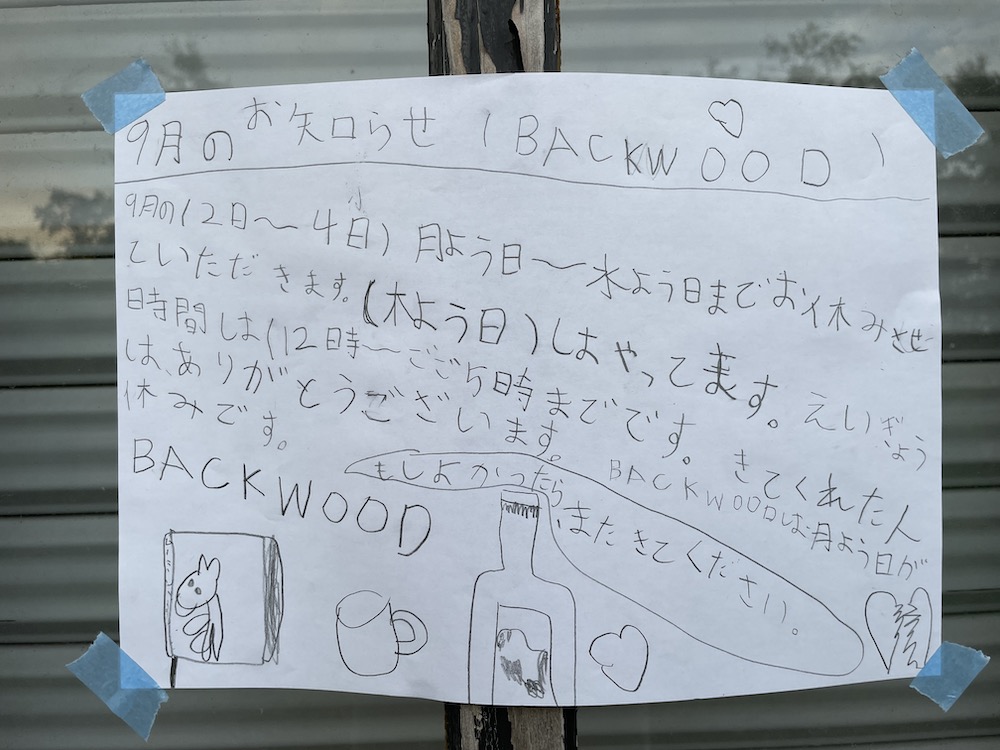 9月のお知らせ(BACKWOOD)
9月の(2日〜4日)月よう日〜水よう日までお休みさせ
ていただきます。(木よう日)はやってます。えいぎょう
時間は(12時〜ごご5時までです。きてくれた人
は、ありがとうございます。BACKWOODは月よう日が
休みです。
BACKWOOD
もしよかったら、またきてください。